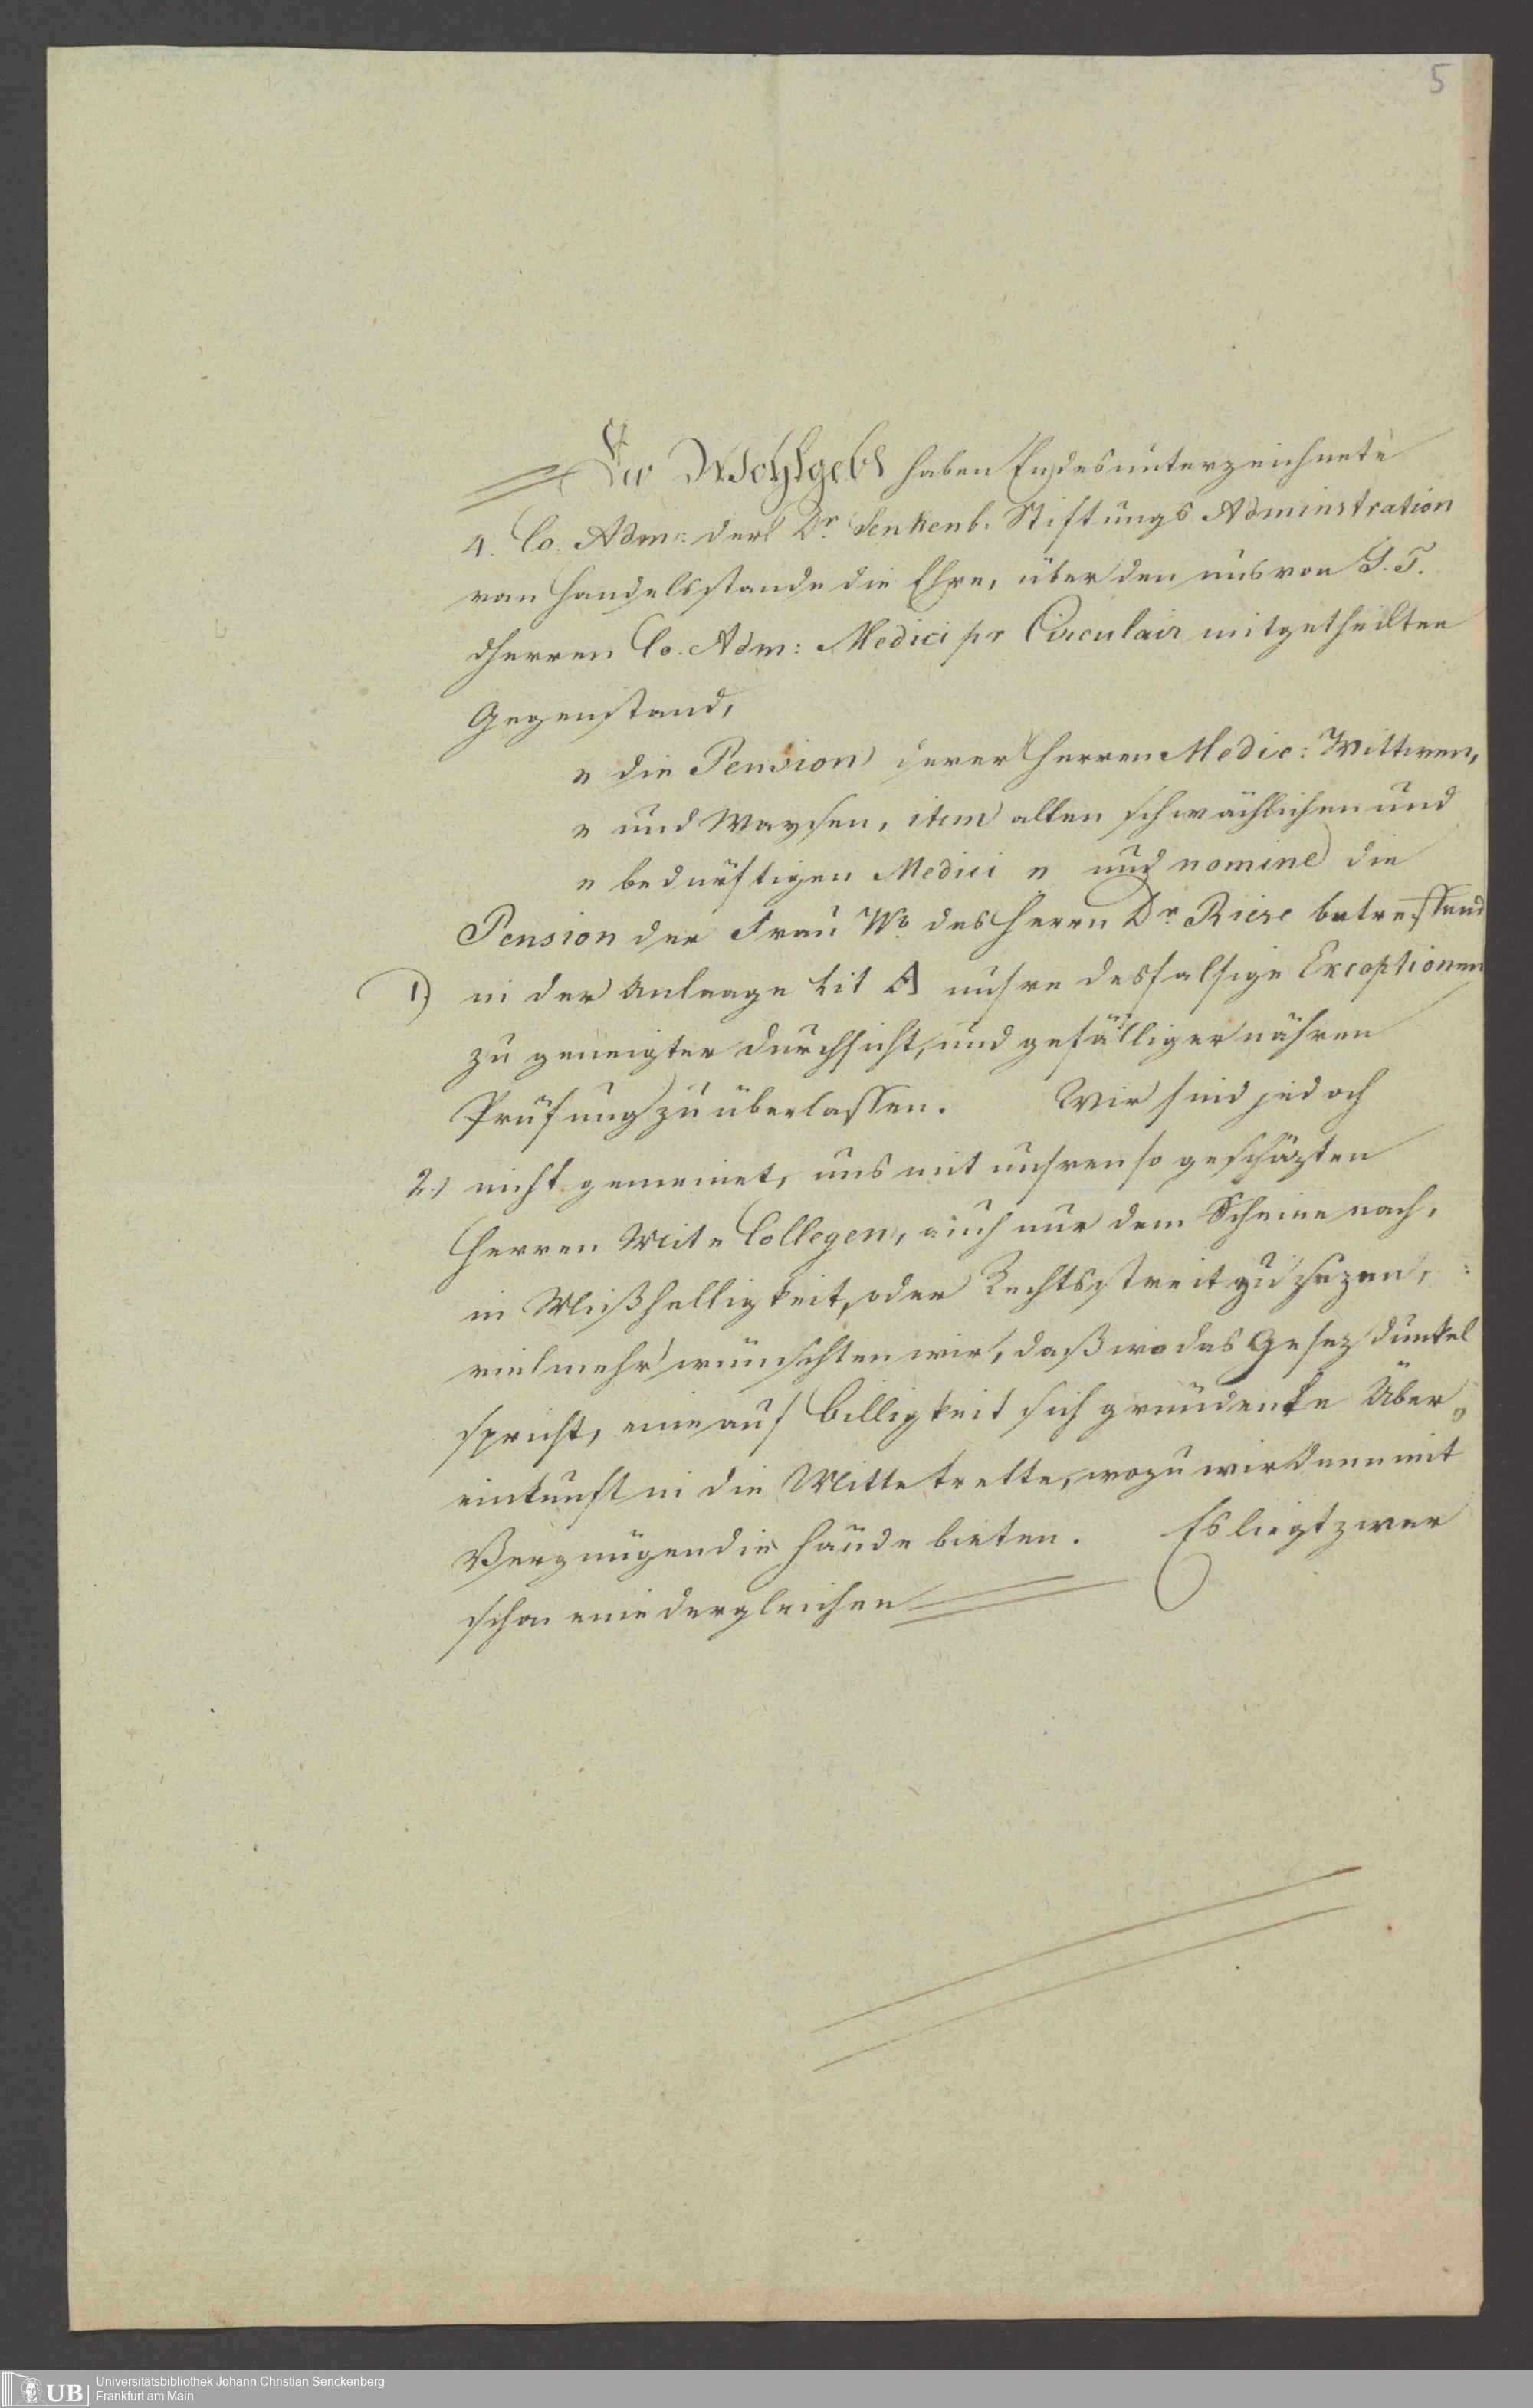 5
Ew Wohlgeb haben Endesunterzeichnete
4. Co. Adm: der Dr. Senkenb: Stiftungs Adminstration
von Handelsstande die Ehre, über den uns von S. T.
Herren Co. Adm: Medici pr Circulair mitgetheilten
Gegenstand,
„ die Pension derer Herren Medic: Wittwen,
„ und Waysen, item alten schwächlichen und
„ bedürftigen Medici „ und nomine die
Pension der Frau We. des Herrn Dr. Riese betreffend
1) in der Anlaage Lit A unsre desfalsige Exceptionen
zu geneigter Durchsicht, und gefälliger nähren
Prüfung zu überlassen. Wir sind jedoch
2.) nicht gemeinet, uns mit unsren so geschäzten
Herren Mit„ Collegen, auch nur dem Scheine nach,
in Mißhelligkeit, oder Rechtsstreit zu sezen,
vielmehr wünschten wir, daß wo das Gesez dunkel
spricht, eine auf Billigkeit sich gründente Über„
einkunft in die Mitte trette, wozu wir dann mit
Vergnügen die Hände bieten. Es liegt zwar
schon eine dergleichen
UB
Universitätsbibliothek Johann Christian Senckenberg
Frankfurt am Main